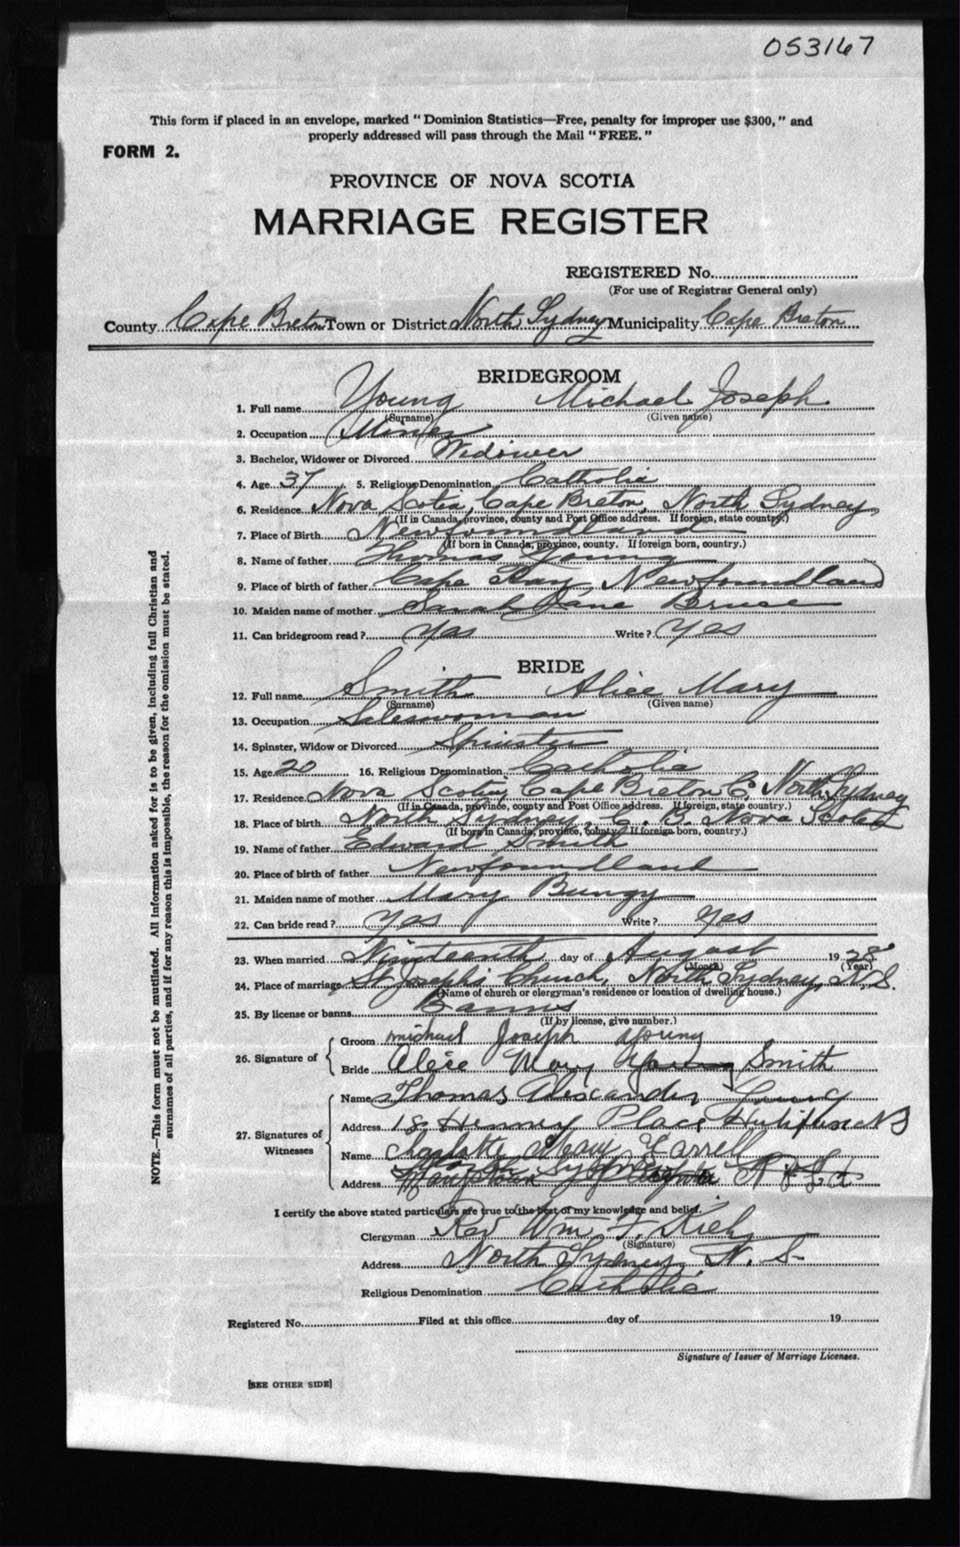 053167
This form if placed in an envelope, marked "Dominion Statistics—Free, penalty for improper use $300," and
properly addressed will pass through the Mail "FREE."
FORM 2.
PROVINCE OF NOVA SCOTIA
MARRIAGE REGISTER
REGISTERED No.
(For use of Registrar General only)
County Cape Breton Town or District North Sydney Municipality Cape Breton
BRIDEGROOM
1. Full name Young Michael Joseph
(Surname) (Given name)
2. Occupation Miner
3. Bachelor, Widower or Divorced Widower
4. Age 37 5. Religious Denomination Catholic
6. Residence Nova Scotia, Cape Breton, North Sydney
(If in Canada, province, county and Post Office address. If foreign, state country.)
7. Place of Birth Newfoundland
(If born in Canada, province, county. If foreign born, country.)
8. Name of father Thomas Young
9. Place of birth of father Cape Ray, Newfoundland
10. Maiden name of mother Sarah Jane Bruce
11. Can bridegroom read? Yas Write? Yes
BRIDE
12. Full name Smith Alice Mary
(Surname) (Given name)
13. Occupation Saleswoman
14. Spinster, Widow or Divorced Spinster
15. Age 20 16. Religious Denomination Catholic
17. Residence Nova Scotia, Cape Breton C. North Sydney
(If in Canada, province, county and Post Office address. If foreign, state country.)
18. Place of birth North Sydney, C. B. Nova Scotia
(If born in Canada, province, county. If foreign born, country.)
19. Name of father Edward Smith
20. Place of birth of father Newfoundland
21. Maiden name of mother Mary Bungy
22. Can bride read? Yas Write? Yas
23. When married Nineteenth day of August 1928
(Month) (Year)
24. Place of marriage St Joseph's Church, North Sydney, N. S.
(Name of church or clergyman's residence or location of dwelling house.)
25. By license or banns Banns
(If by license, give number.)
26. Signature of
Groom Michael Joseph Young
Bride Alice Mary Young Smith
27. Signatures of Witnesses
Name Thomas Alexander Young
Address 18 Henry Place Halifax NS
Name Charlotte Mary Farrell
Address
I certify the above stated particulars are true to the best of my knowledge and belief.
Clergyman Rev Wm F. Kiely
(Signature)
Address North Sydney N. S.
Religious Denomination Catholic
Registered No. Filed at this office day of 19
Signature of Issuer of Marriage Licenses.
[SEE OTHER SIDE]
NOTE.—This form must not be mutilated. All information asked for is to be given, including full Christian and
surnames of all parties, and if for any reason this is impossible, the reason for the omission must be stated.